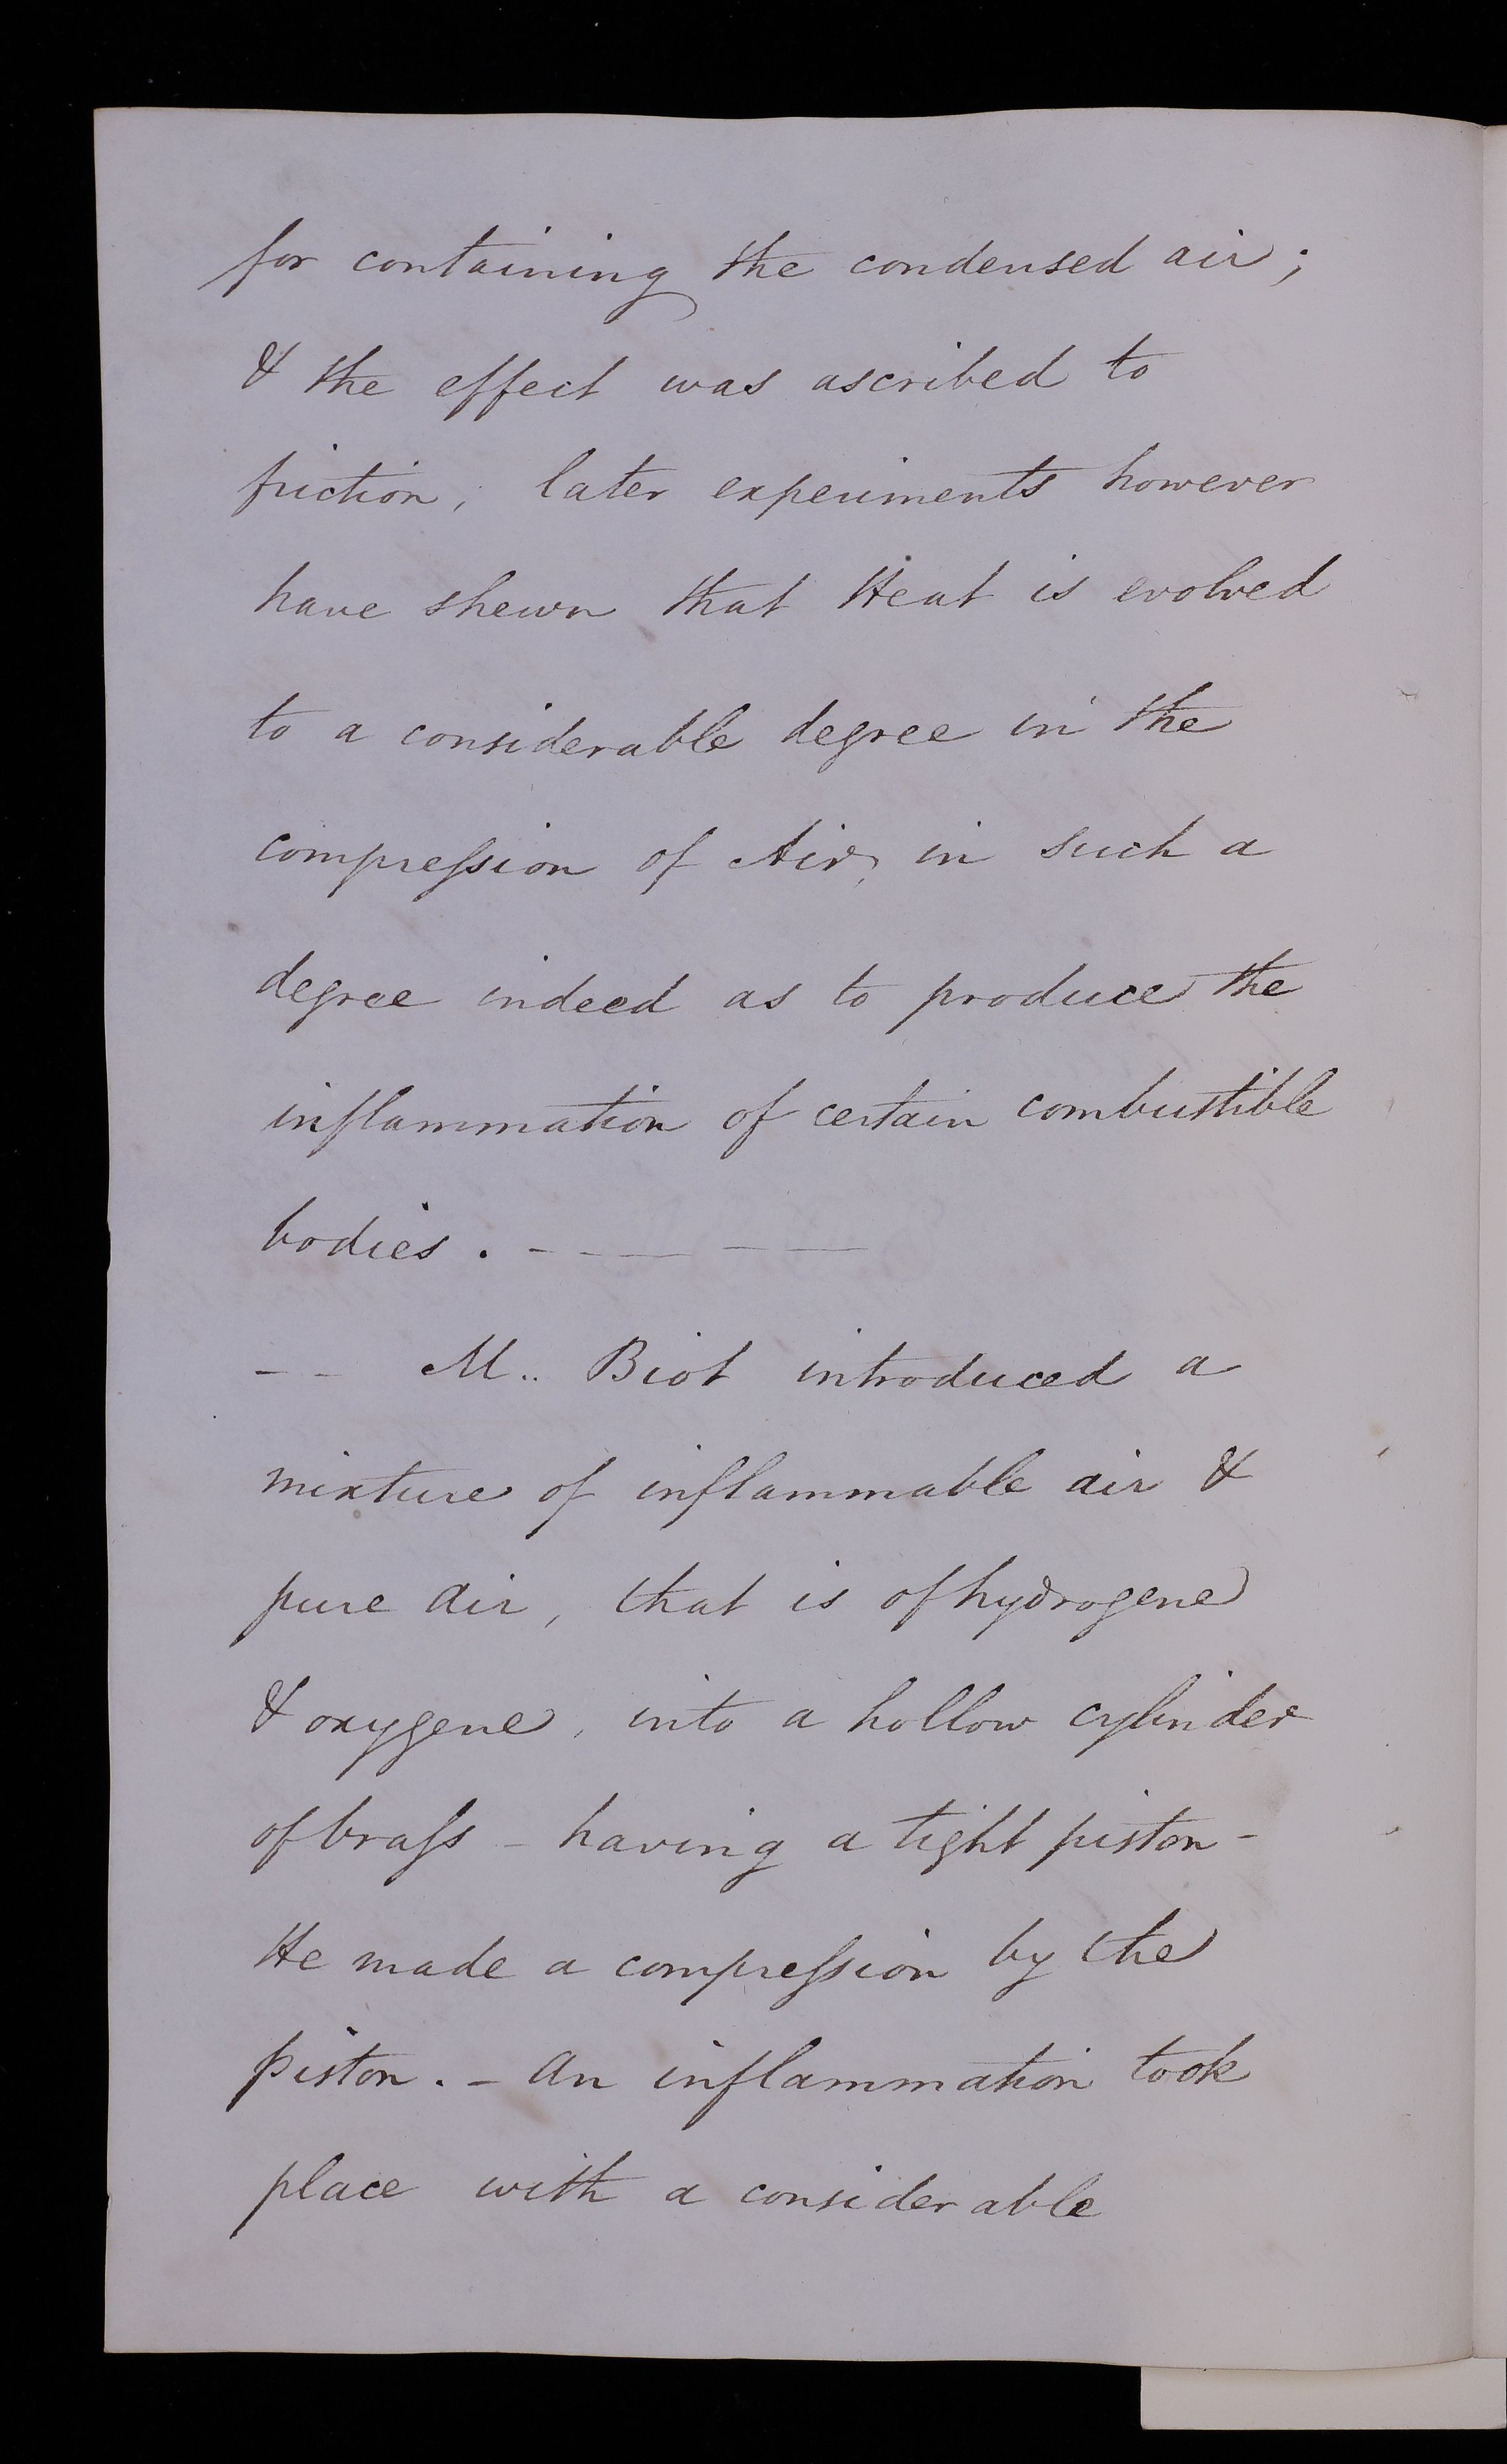 for containing the condensed air;
& the effect was ascribed to
friction; later experiments however
have shewn that Heat is evolved
to a considerable degree in the
compreſsion of Air, in such a
degree indeed as to produce the
inflammation of certain combustible
bodies. - - — - —
- - M.. Biot introduced a
mixture of inflammable air &
pure air, that is of hydrogene
& oxygene, into a hollow cylinder
of braſs - having a tight piston -
He made a compreſsion by the
piston. - An inflammation took
place with a considerable